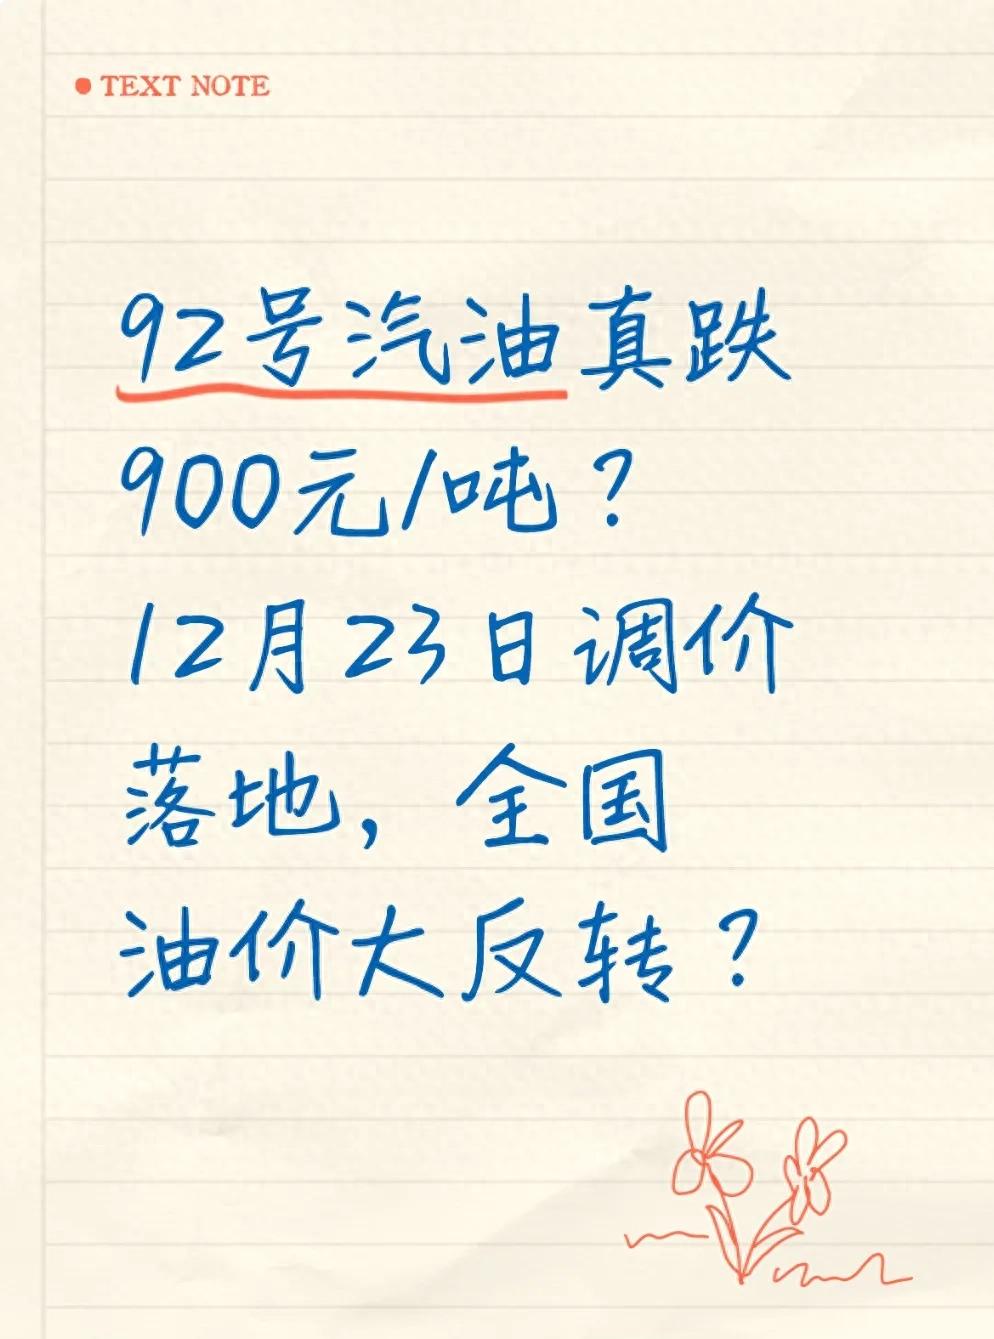 TEXT NOTE
92号汽油真跌
900元/吨？
12月23日调价
落地，全国
油价大反转？